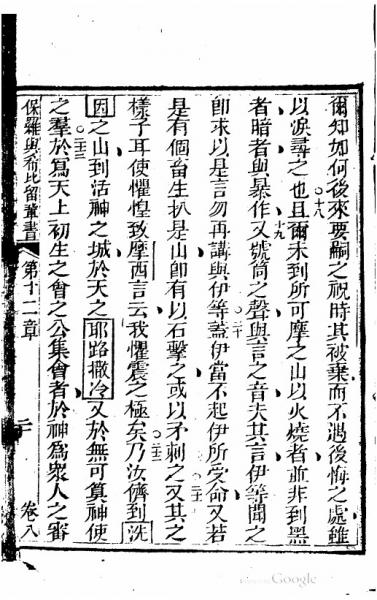 爾知如何後來要嗣之祝時其被棄而不遇後悔之處雖
以淚尋之也。十八且爾未到所可摩之山以火燒者並非到黑
者暗者與暴作。十九又號筒之聲與言之音夫其言伊等聞之
卽求以是言勿再講與伊等。二十蓋伊當不起伊所受命又若
是有個畜生扒是山卽有以石擊之或以矛刺之。二一又其之
樣子耳使懼惶致摩西言云我懼震之極矣。二二乃汝儕到洗
因之山到活神之城於天之耶路撒冷又於無可算神使
之羣。二三於爲天上初生之會之公集會者於神爲衆人之審
保羅與希比留輩書 第十二章 三 卷八
Google